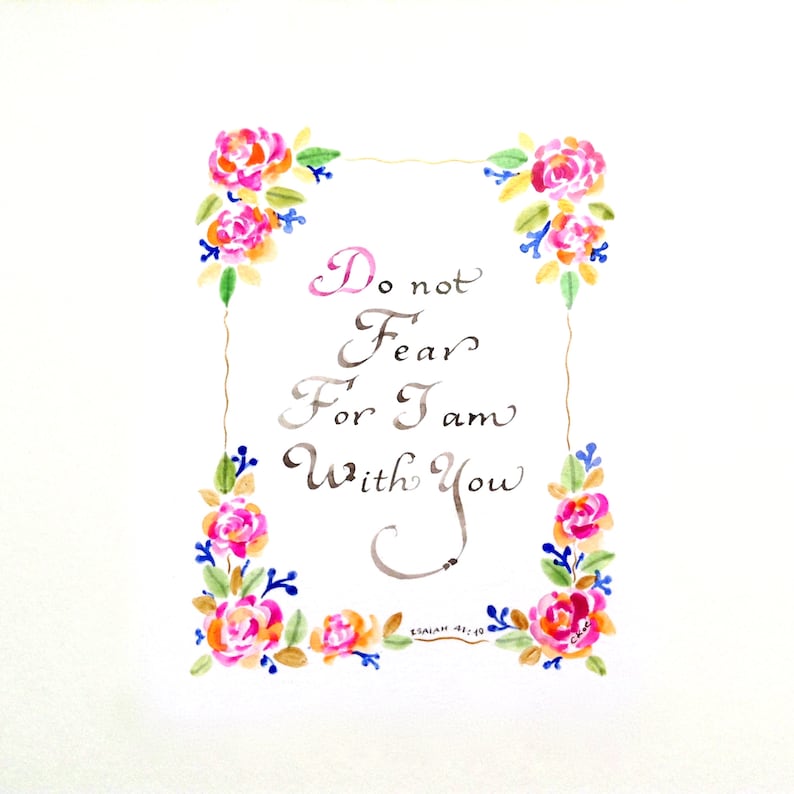 Do not
Fear
For I am
With You
ISAIAH 41:10
CKOC